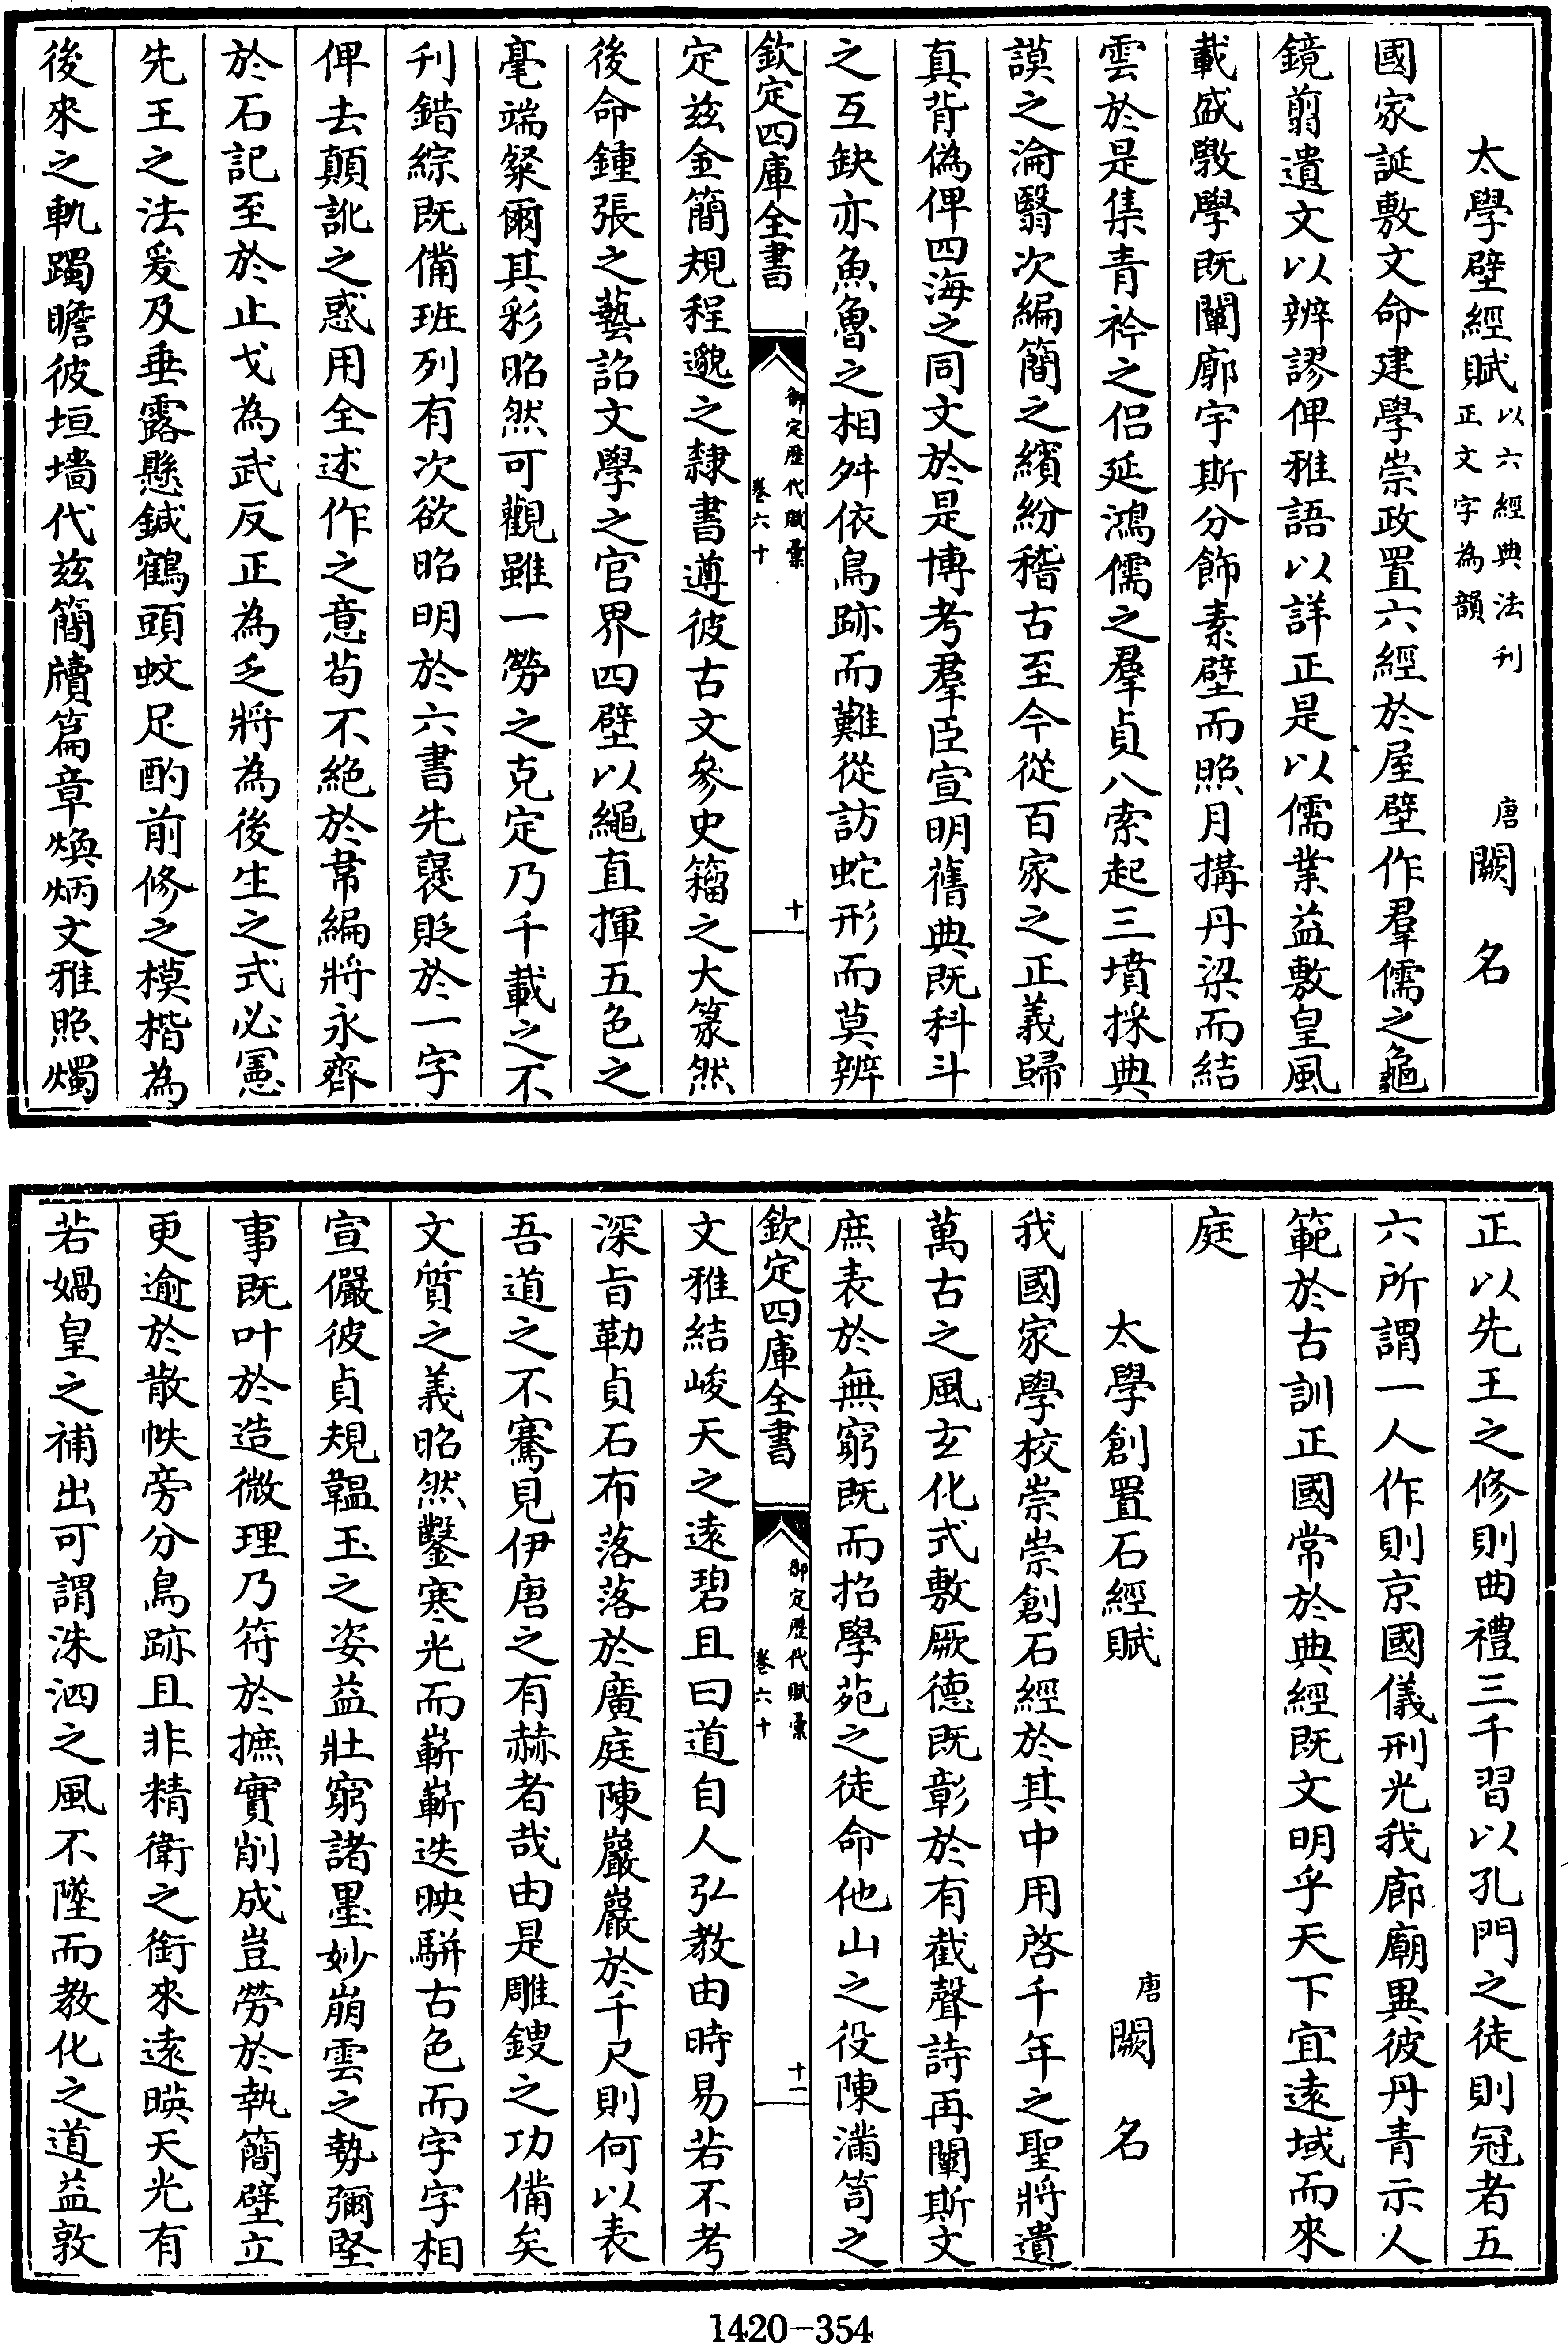 太學壁經賦以六經典法刊正文字為韻 唐闕名
國家誕敷文命建學崇政置六經於屋壁作羣儒之龜
鏡翦遺文以辨謬俾雅語以詳正是以儒業益敷皇風
載盛斅學既闡廓宇斯分飾素壁而照月搆丹梁而結
雲於是集青衿之侶延鴻儒之羣貞八索起三墳採典
謨之淪翳次編簡之繽紛稽古至今從百家之正義歸
真背偽俾四海之同文於是博考羣臣宣明舊典既科斗
之互缺亦魚魯之相舛依鳥跡而難從訪蛇形而莫辨
欽定四庫全書 御定歷代賦彙 卷六十 十
定兹金簡規程邈之隸書遵彼古文參史籀之大篆然
後命鍾張之藝詔文學之官界四壁以繩直揮五色之
毫端粲爾其彩昭然可觀雖一勞之克定乃千載之不
刊錯綜既備班列有次欲昭明於六書先褒貶於一字
俾去顛訛之惑用全述作之意苟不絶於韋編將永齊
於石記至於止戈為武反正為乏將為後生之式必憲
先王之法爰及垂露懸鍼鶴頭蚊足酌前修之模楷為
後來之軌躅瞻彼垣墻代兹簡牘篇章煥炳文雅照燭
正以先王之修則曲禮三千習以孔門之徒則冠者五
六所謂一人作則京國儀刑光我廊廟異彼丹青示人
範於古訓正國常於典經既文明乎天下宜遠域而來
庭
太學創置石經賦 唐闕名
我國家學校崇崇創石經於其中用啓千年之聖將遺
萬古之風玄化式敷厥德既彰於有截聲詩再闡斯文
庶表於無窮既而招學苑之徒命他山之役陳滿笥之
欽定四庫全書 御定歷代賦彙 卷六十 十一
文雅結峻天之遠碧且曰道自人弘教由時易若不考
深旨勒貞石布落落於廣庭陳巖巖於千尺則何以表
吾道之不騫見伊唐之有赫者哉由是雕鎪之功備矣
文質之義昭然鑿寒光而嶄嶄迭映駢古色而字字相
宣儼彼貞規韞玉之姿益壯窮諸墨妙崩雲之勢彌堅
事既叶於造微理乃符於摭實削成豈勞於執簡壁立
更逾於散帙旁分鳥跡且非精衛之銜來遠暎天光有
若媧皇之補出可謂洙泗之風不墜而教化之道益敦
1420-354